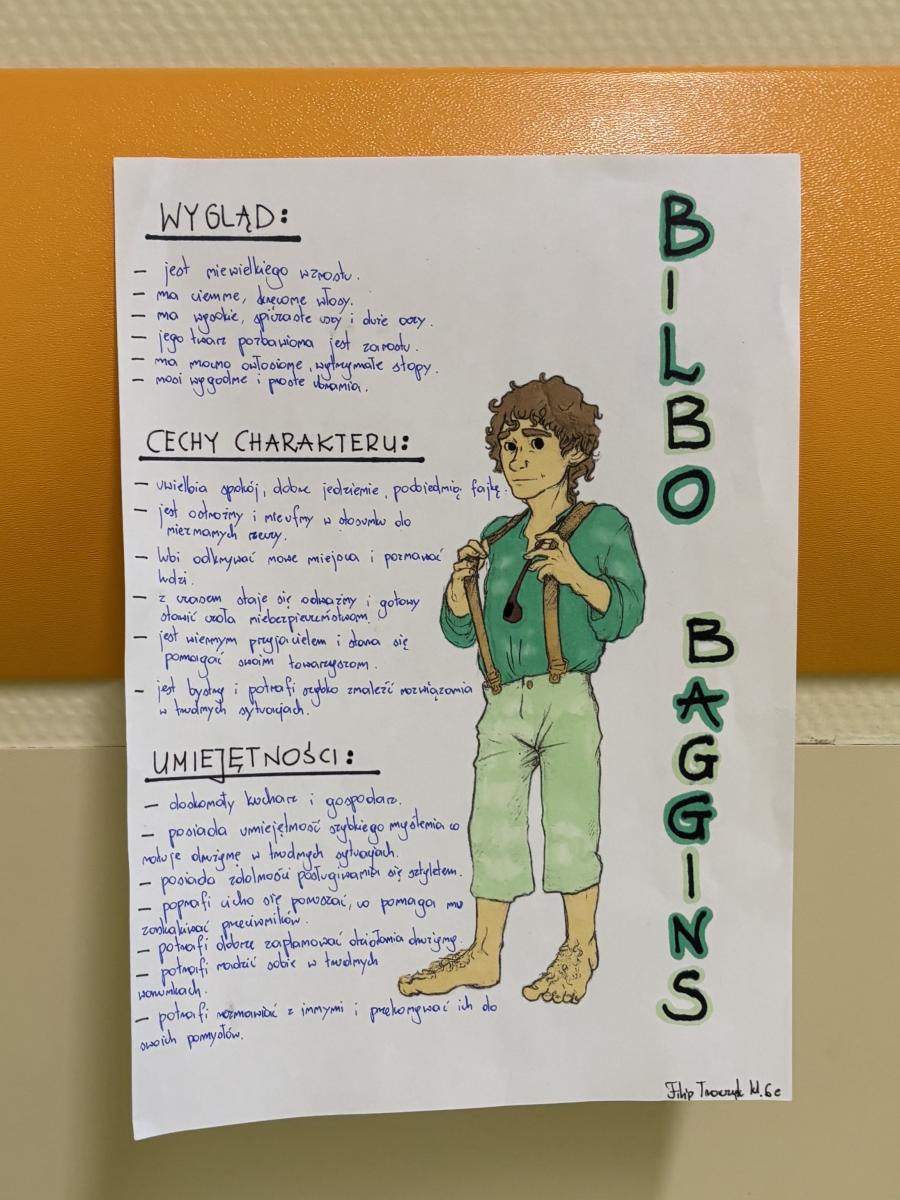 WYGLĄD:
– jest niewielkiego wzrostu.
– ma ciemne, kręcone włosy.
– ma wysokie, spiczaste uszy i duże oczy.
– jego twarz pozbawiona jest zarostu.
– ma mocno owłosione, wytrzymałe stopy.
– nosi wygodne i proste ubrania.
CECHY CHARAKTERU:
– uwielbia spokój, dobre jedzenie, podobiednią fajkę.
– jest ostrożny i nieufny w stosunku do
nieznanych rzeczy.
– lubi odkrywać nowe miejsca i poznawać
ludzi.
– z czasem staje się odważny i gotowy
stawić czoła niebezpieczeństwom.
– jest wiernym przyjacielem i stara się
pomagać swoim towarzyszom.
– jest bystry i potrafi szybko znaleźć rozwiązania
w trudnych sytuacjach.
UMIEJĘTNOŚCI:
– doskonały kucharz i gospodarz.
– posiada umiejętność szybkiego myślenia co
ratuje drużynę w trudnych sytuacjach.
– posiada zdolności posługiwania się sztyletem.
– poprafi cicho się poruszać, co pomaga mu
zaskakiwać przeciwników.
– potrafi dobrze zaplanować działania drużyny.
– potrafi radzić sobie w trudnych
warunkach.
– potrafi rozmawiać z innymi i przekonywać ich do
swoich pomysłów.
BILBO
BAGGINS
Filip kl. 6e